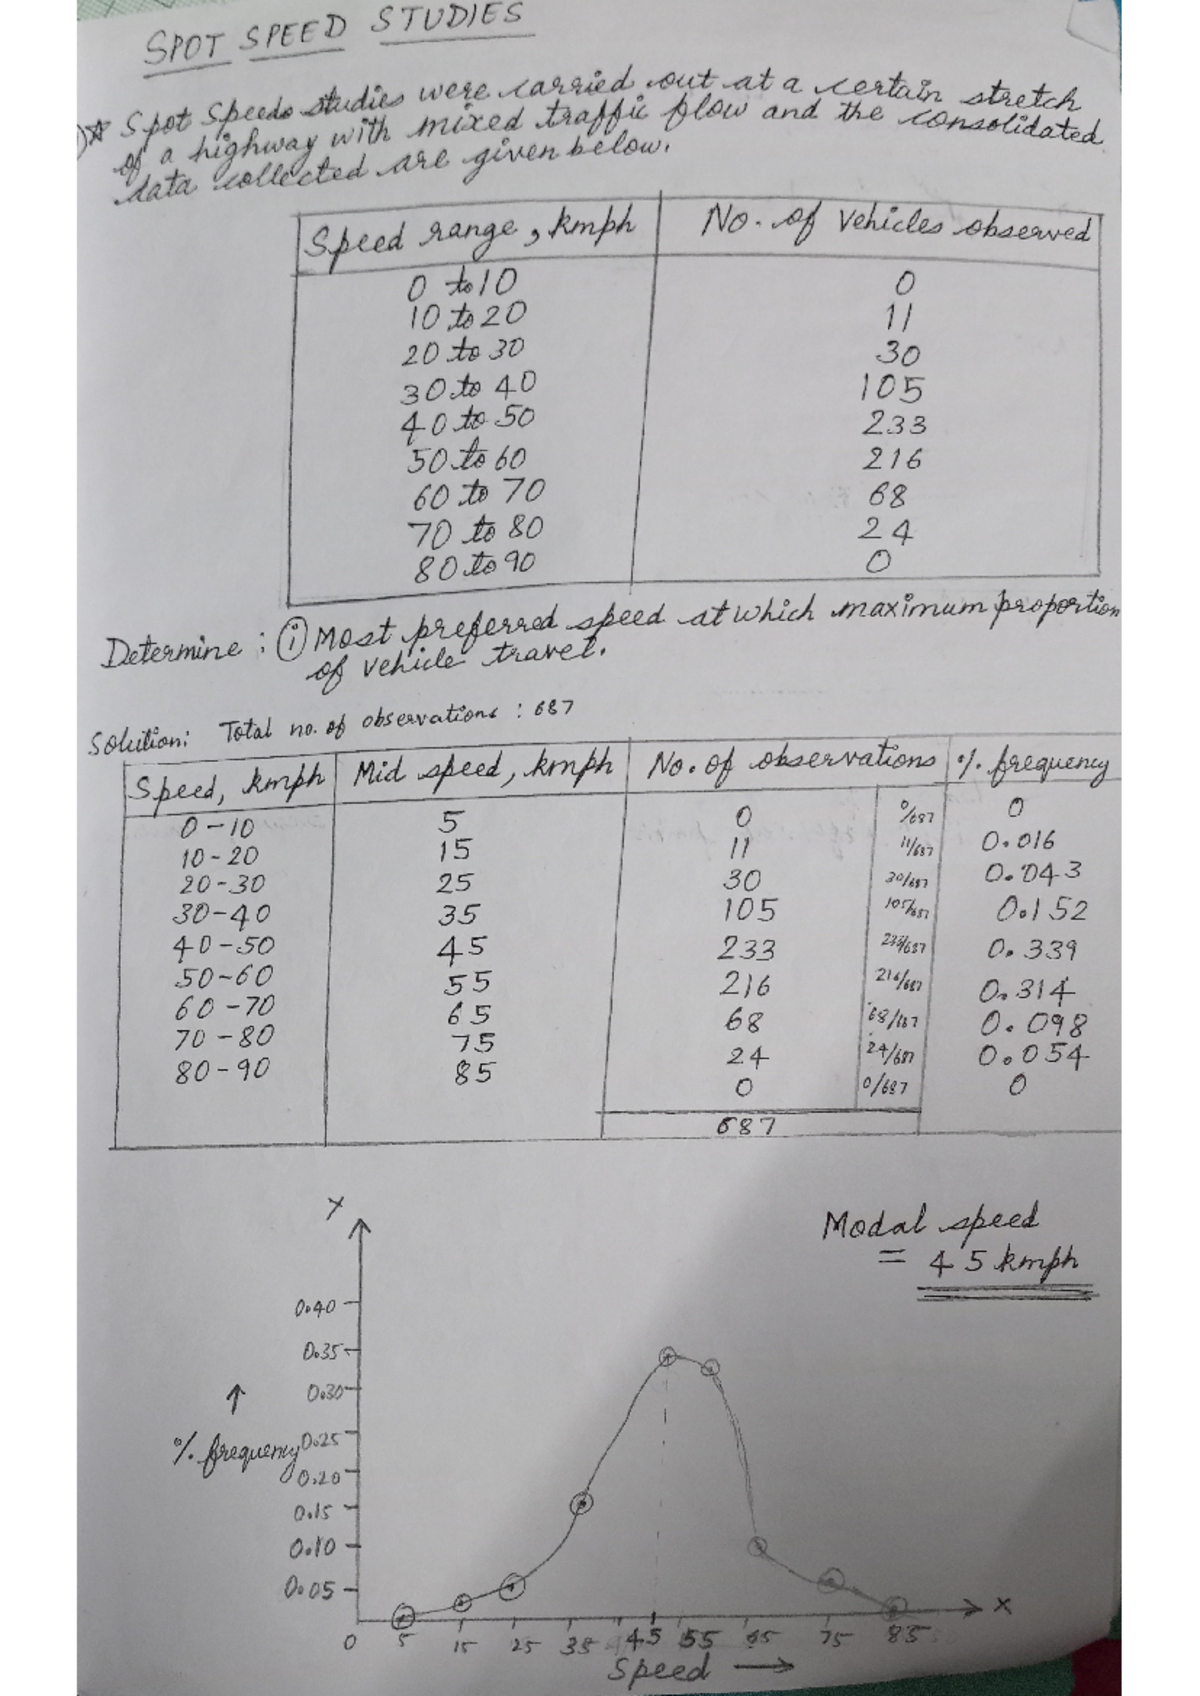 SPOT SPEED STUDIES
1)☆ Spot Speeds studies were carried out at a certain stretch
of a highway with mixed traffic flow and the consolidated
data collected are given below.
Speed range, kmph No. of vehicles observed
0 to 10 0
10 to 20 11
20 to 30 30
30 to 40 105
40 to 50 233
50 to 60 216
60 to 70 68
70 to 80 24
80 to 90 0
Determine : (i) Most preferred speed at which maximum proportion
of vehicle travel.
Solution: Total no. of observations : 687
Speed, kmph Mid speed, kmph No. of observations %. frequency
0-10 5 0 0/687 0
10-20 15 11 11/687 0.016
20-30 25 30 30/687 0.043
30-40 35 105 105/687 0.152
40-50 45 233 233/687 0.339
50-60 55 216 216/687 0.314
60-70 65 68 68/687 0.098
70-80 75 24 24/687 0.054
80-90 85 0 0/687 0
687
Y
Modal speed
= 45 kmph
0.40
0.35
↑ 0.30
%. frequency 0.25
0.20
0.15
0.10
0.05
X
0 5 15 25 35 45 55 65 75 85
Speed →